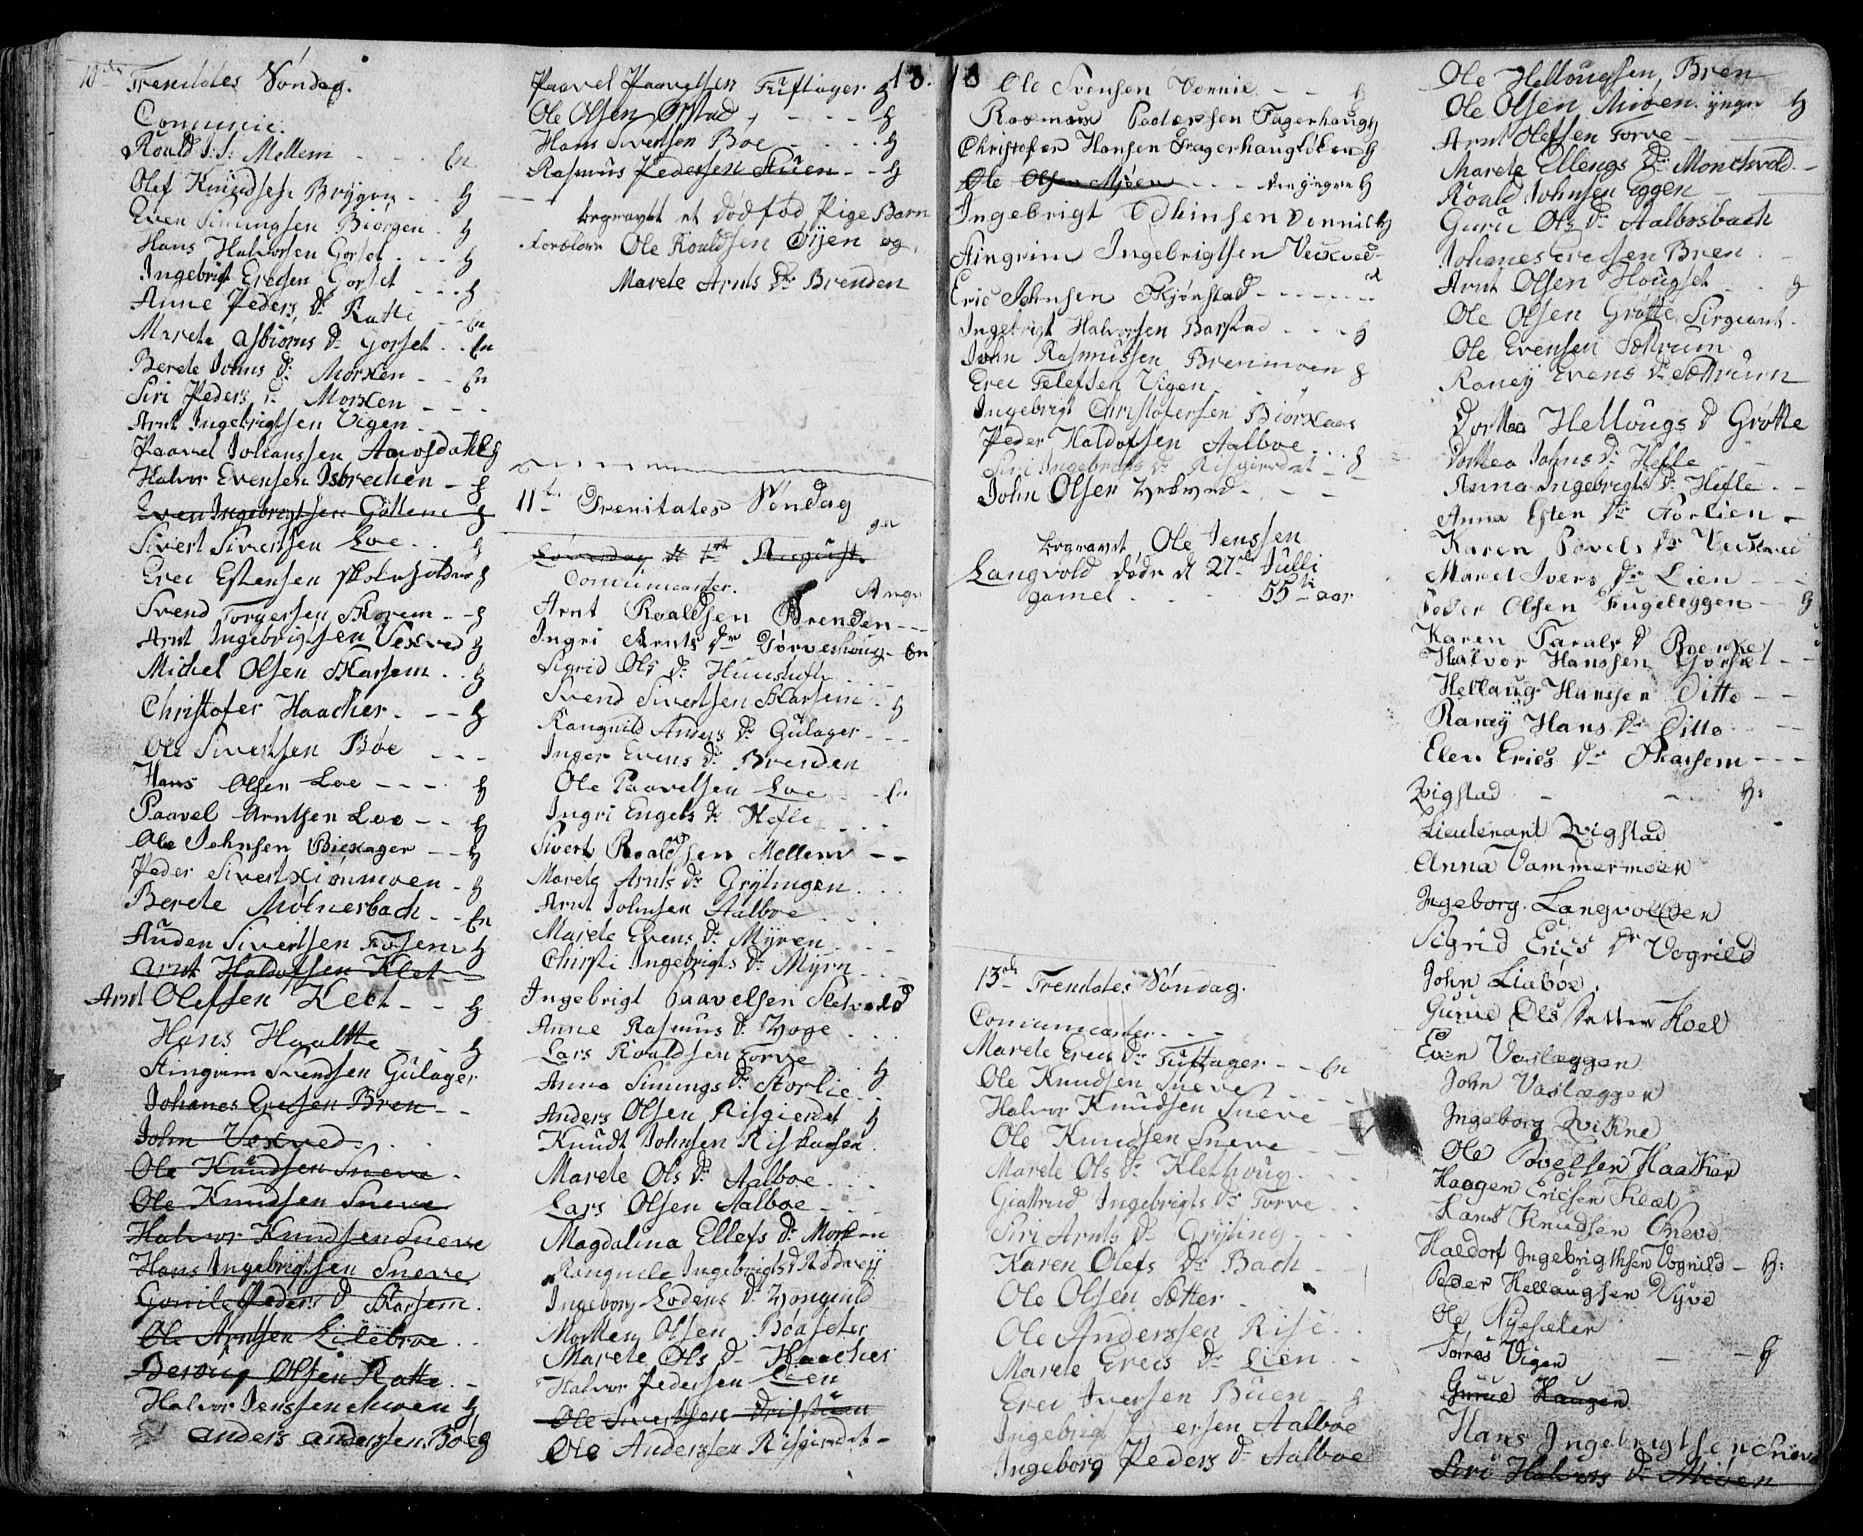 10de Trenitates Søndag.
Comunic:
Roald J: S: Mellem - - - En
Olef Knudsen Bryggen - - H
Even Simingsen Biørgen - H
Hans Halvorsen Gorset - - - H
Ingebrigt Ericsen Gorset - - - H
Anne Peders Dr Ratte - - En
Marete Asbiørns Dr Gorset - - En
Berete Johns Dr Morken - - En
Siri Peders Dr Morken - - -
Arnt Ingebrigtsen Vigen -
Paavel Johanssen Aamodahl H
Halvor Evensen Isbrechen - H
Even Ingebrigtsen Gottem H
Sivert Sivertsen Loe - - H
Eric Estensen Skoleholder H
Svend Torgersen Skorem - - H
Arnt Ingebrigtsen Vexved H
Michel Olsen Skarsem - - H
Christofer Haacher - - - H
Ole Sivertsen Bøe - - -
Hans Olsen Loe - - - H
Paavel Arntsen Loe - - H
Ole Johnsen Biexager - - H
Peder Sivertsen moen - H
Berete Mølnersbach - - En
Auden Sivertsen Fosem H
Arnt Haldofsen Klet
Arnt Olefsen Kleet - - H
Hans Haaltte - - H
Stingrim Svendsen Gulager
Johanes Ericsen Bren - -
John Vexved - -
Ole Knudsen Sneve -
Ole Knudsen Sneve
Halvor Knudsen Sneve
Hans Ingebrigtsen Sneve
Gonile Peders D Skarsem.
Ole Arntsen Lilebroe - -
Olsen Ratte -
Halvor Jenssen Moen H
Anders Anderssen Boe H
Paavel Paavelsen Tuftager H
Ole Olsen Ostad - - - - H
Hans Sivertsen Boe - - - - H
Rasmus Pedersen Stuen - - H
begravet et Dødfød Pige Barn
Forældre Ole Roaldsen Øijen og
Marete Arnts Dr Brenden
11te Trenitates Søndag
Løverdag d 1te August
Comunicanter.
Arnt Roaldsen Brenden - - -
Ingri Arnts Dr Torveshoug - En
Sigrid Ols Dr
Svend Sivertsen Skarsem - H
Rangnild Anders Dr Gulager - - -
Inger Evens Dr Brenden
Ole Paavelsen Loe - - En
Ingri Engels Dr Hefle - - -
Sivert Roaldsen Mellem - -
Marete Arnts Dr Grytingen - - -
Arnt Johnsen Aalboe - - -
Marete Evens Dr Myren - - -
Chirsti Ingebrigts Dr Myrn - - -
Ingebrigt Paavelsen Sletvold
Anne Rasmus Dr Hoge - - -
Lars Roaldsen Torve - - H
Anna Simings Dr Storlie - -
Anders Olsen Risgierdet H
Knudt Johnsen
Marete Ols Dr Aalboe - - -
Lars Olsen Aalboe - - -
Magdalina Ellefs Dr Morken
Rangnile Ingebrigts D
Ingeborg Lodens Dr Vongnild
Morten Olsen Boaseter
Marete Ols Dr Haacher
Halvor Pedersen Leen
Ole Sivertsen
Ole Anderssen Risgierdet -
13.
18
Ole Svensen Vonnie - - H
Rasmus Paalersen Fagerhaug H
Christofer Hansen Fagerhaugløken H
Ole Olsen Mjøen - - - den yngre H
Ingebrigt Edhinsen Vonnil H
Stingrim Ingebrigtsen Vexved
Eric Johnsen Skjønstad - - - - -
Ingebrigt Halvorsen Barstad - - - H
John Rasmussen Brenmoen H
Eric Telefsen Vigen - - -
Ingebrigt Christofersen Biørkaas
Peder Haldofsen Aalboe - - -
Siri Ingebrigts Dr Risgierdet - H
John Olsen Vekved - - -
begravet Ole Jenssen
Langvold døde d 27de Julli
gamel - - - 55 aar
13de Trenitates Søndag.
Comunicanter - - -
Marete Erics Dr Tuftager - - En
Ole Knudsen Sneve - - -
Halvor Knudsen Sneve - -
Ole Knudsen Sneve - -
Marete Ols Dr Klethoug - - -
Giattrud Ingebrigts Dr Torve - -
Siri Arnts Dr Gryting - - -
Karen Olefs Dr Bach - -
Ole Olsen Sætter -
Ole Anderssen Rise - -
Marete Erics Dr Lien - -
Eric Iversen Buen - H
Ingebrigt ersen Aalboe
Ingeborg Peders Dr Aalboe
Ole Hellougsen Bren
Ole Olsen Miøen yngre H
Arnt Olefsen Torve - -
Marete Ellengs Dr Monchvold -
Roald Johnsen Eggen -
Guru Ols Dr Aalbosbach
Johanes Ericsen Bren - -
Arnt Olsen Hougset - - H
Ole Olsen Grøtte Sirgeant -
Ole Evensen Sætrum
Ranei Evens Dr Sætrum
Dorttea Hellougs D Grøtte
Dorttea Johns Dr Hefle -
Anna Ingebrigts Dr Hefle - -
Anna Esten Dr Aorlien -
Karen Povels Dr Vecked
Maret Ivers Dr Lien - - -
Peder Olsen Fugeleggen - - H
Karen Tarals D
Halvor Hanssen Gorset - -
Hellaug Hanssen Ditto - -
Raneÿ Hans Dr Ditto - -
Elen Erics Dr Skarsem - - -
Wigstad - - - H:
Lieutenant Wigstad
Anna Vammermoen
Ingeborg Langvolden
Sigrid Erics Dr Vognild
John Liaboe.
Gurue Ols Sætter Hoel
Even Vasleggen
John Vasleggen
Ingeborg Wikne
Ole Poelsen Haaker
Haagen Ericsen Kleet
Hans Knudsen Sneve
Haldorf Ingebrigthsen Vognild - H:
Peder Hellaugsen Dyve
Ole Nysæter
Tørres Vigen - - H
Gurue Haugen
Hans Ingebrigthsen Sneve
Siri Halvors Dr Miøen